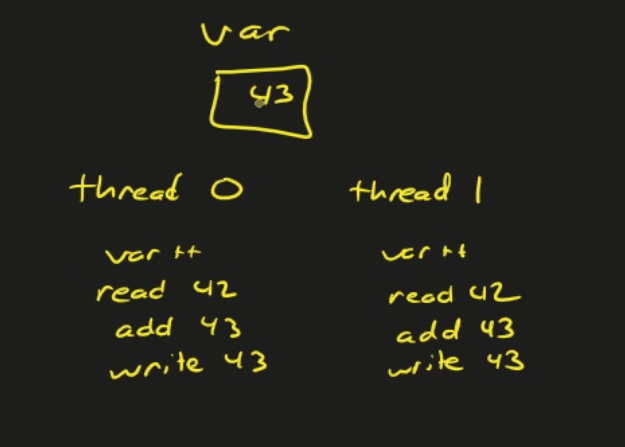 var
43
thread 0
var ++
read 42
add 43
write 43
thread 1
var ++
read 42
add 43
write 43